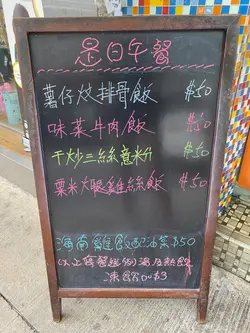 是日午餐
薯仔炆排骨飯 $50
味菜牛肉飯 $50
干炒三絲意米粉 $50
粟米火腿雞絲飯 $50
海南雞飯配油菜 $50
(以上午餐跟例湯及熱飲
凍飲加$3